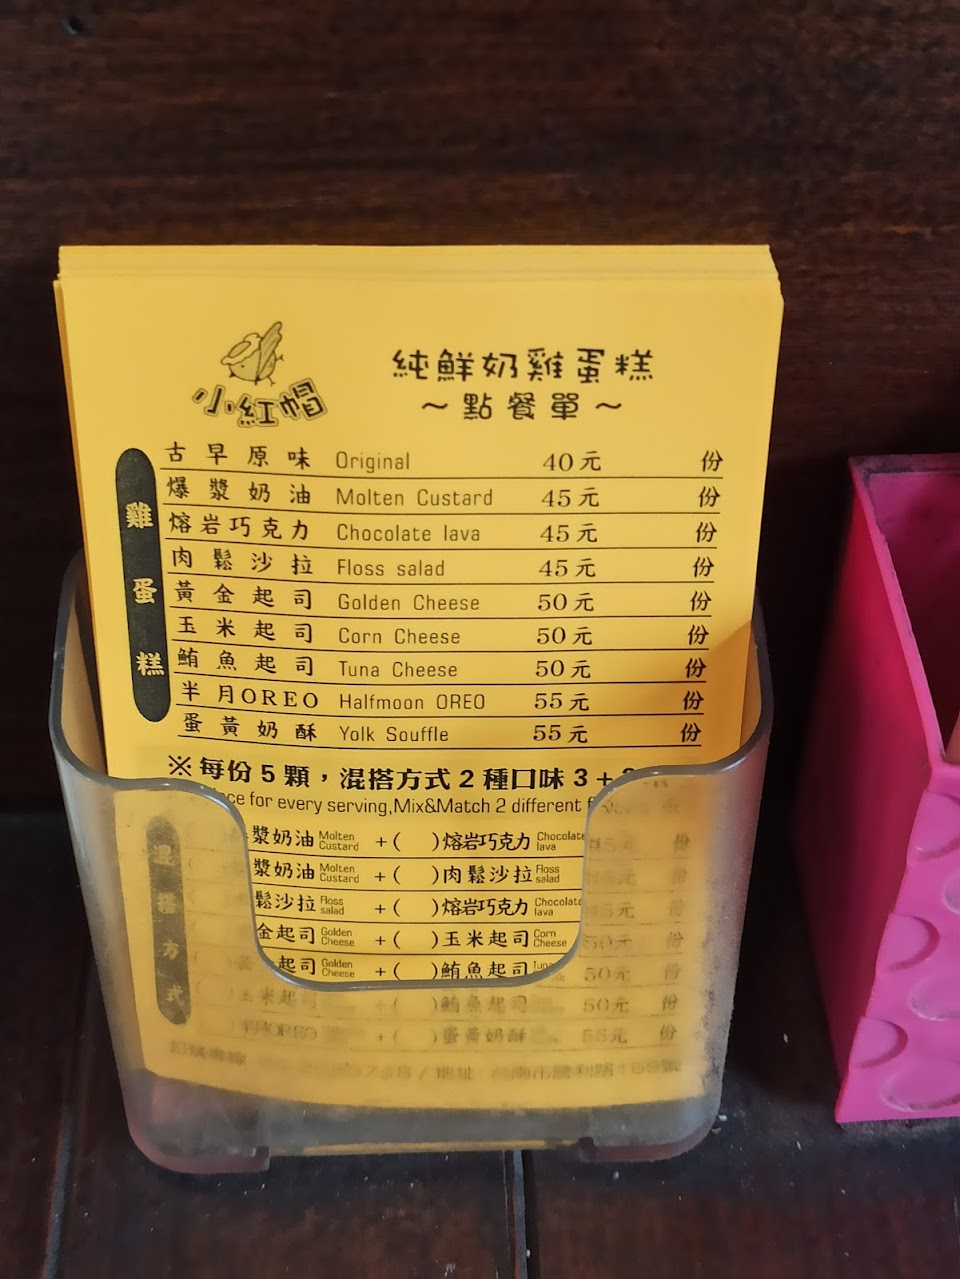 小紅帽
純鮮奶雞蛋糕
～點餐單～
雞蛋糕
古早原味 Original 40元 份
爆漿奶油 Molten Custard 45元 份
熔岩巧克力 Chocolate lava 45元 份
肉鬆沙拉 Floss salad 45元 份
黃金起司 Golden Cheese 50元 份
玉米起司 Corn Cheese 50元 份
鮪魚起司 Tuna Cheese 50元 份
半月OREO Halfmoon OREO 55元 份
蛋黃奶酥 Yolk Souffle 55元 份
※每份5顆，混搭方式2種口味3+
for every serving,Mix&Match 2 different
混搭方式
漿奶油 Molten Custard +( )熔岩巧克力 Chocolate lava 45元 份
漿奶油 Molten Custard +( )肉鬆沙拉 Floss salad 45元 份
鬆沙拉 Floss salad +( )熔岩巧克力 Chocolate lava 45元 份
金起司 Golden Cheese +( )玉米起司 Corn Cheese 50元 份
起司 Golden Cheese +( )鮪魚起司 Tuna 50元 份
玉米起司 +( )鮪魚起司 50元 份
半月OREO +( )蛋黃奶酥 55元 份
/ 地址 台南市勝利路